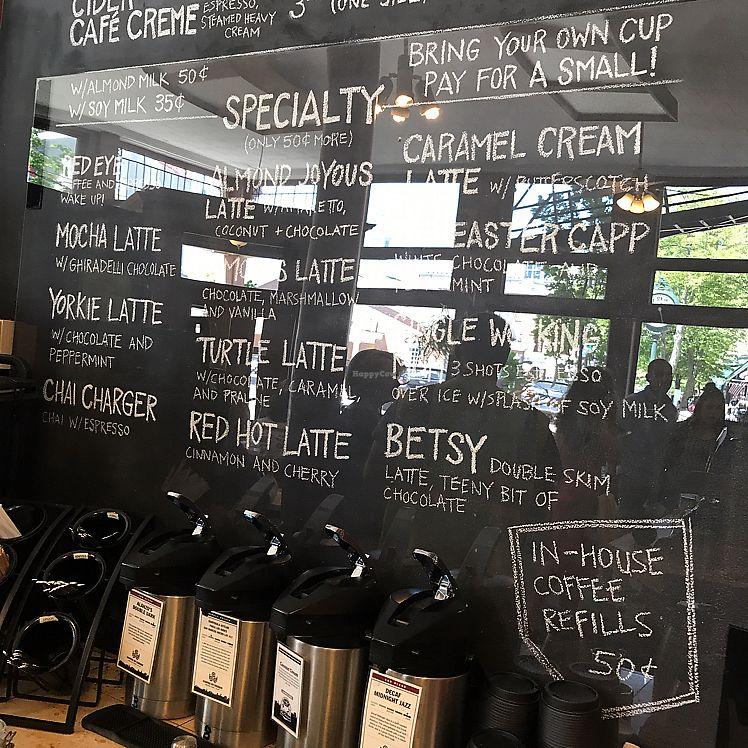 CIDER
CAFÉ CREME
ESPRESSO,
STEAMED HEAVY
CREAM
(ONE SIZE)
BRING YOUR OWN CUP
PAY FOR A SMALL!
W/ALMOND MILK 50¢
W/SOY MILK 35¢
SPECIALTY
(ONLY 50¢ MORE)
RED EYE
COFFEE AND
WAKE UP!
MOCHA LATTE
W/GHIRADELLI CHOCOLATE
YORKIE LATTE
W/CHOCOLATE AND
PEPPERMINT
CHAI CHARGER
CHAI W/ESPRESSO
ALMOND JOYOUS
LATTE W/AMARETTO,
COCONUT + CHOCOLATE
LATTE
CHOCOLATE, MARSHMALLOW
AND VANILLA
TURTLE LATTE
W/CHOCOLATE, CARAMEL,
AND PRALINE
RED HOT LATTE
CINNAMON AND CHERRY
CARAMEL CREAM
LATTE W/BUTTERSCOTCH
EASTER CAPP
WHITE CHOCOLATE AND
MINT
3 SHOTS ESPRESSO
OVER ICE W/SPLASH OF SOY MILK
BETSY DOUBLE SKIM
LATTE, TEENY BIT OF
CHOCOLATE
IN-HOUSE
COFFEE
REFILLS
50¢
HappyCow
DECAF
MIDNIGHT JAZZ